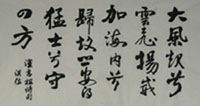 大風起兮
雲飛揚威
加海内兮
歸故鄉安得
猛士兮守
四方